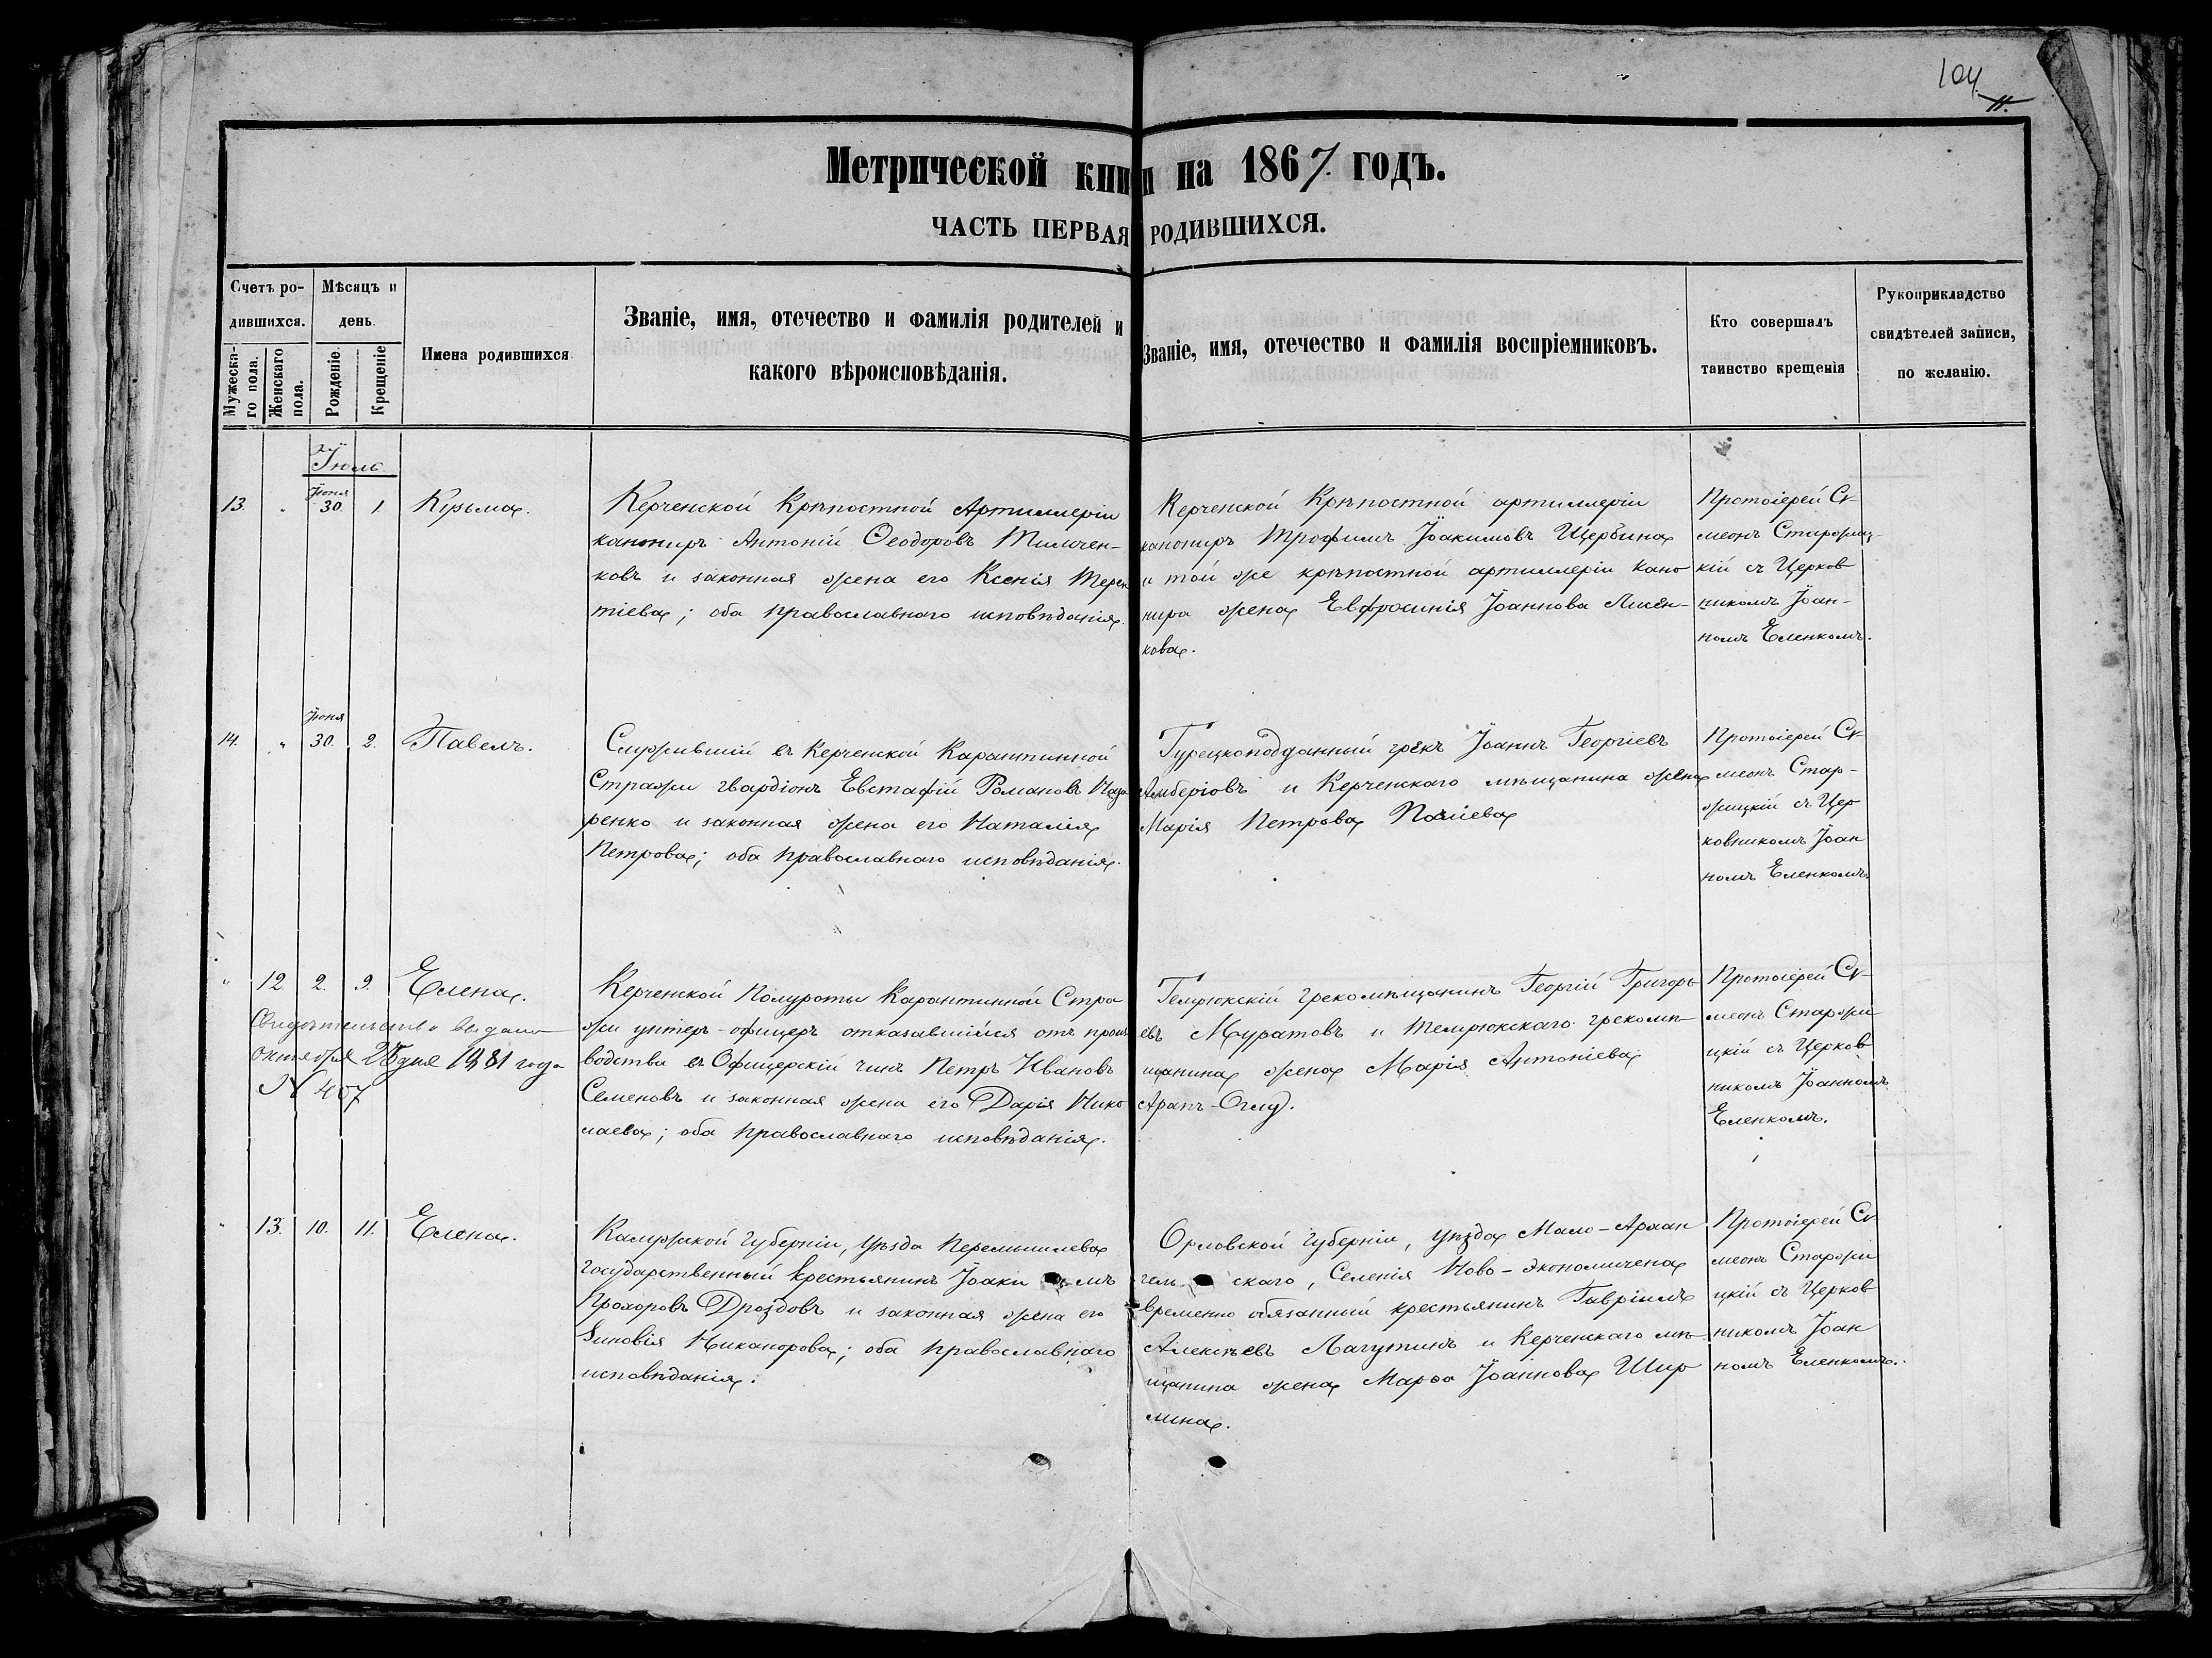 104
11.
Метрической книги на 1867. годъ.
ЧАСТЬ ПЕРВАЯ РОДИВШИХСЯ.
Счетъ ро-
дившихся.
Мужеска-
го пола.
Женскаго
пола.
Мѣсяцъ и
день.
Рожденіе.
Крещеніе
Имена родившихся
Званіе, имя, отечество и фамилія родителей и
какого вѣроисповѣданія.
Званіе, имя, отечество и фамилія воспріемниковъ.
Кто совершалъ
таинство крещенія
Рукоприкладство
свидѣтелей записи,
по желанію.
Іюль.
13. " Іюня 30. 1 Кузьма.
Керченской Крѣпостной Артиллеріи
канониръ Антоній Ѳеодоровъ Тимчен-
ковъ и законная жена его Ксенія Терен
тіева; оба православнаго исповѣданія.
Керченской Крѣпостной артиллеріи
канониръ Трофимъ Іоакимовъ Щербина
и той же крѣпостной артиллеріи кано
нира жена Евфросинія Іоаннова Лисен-
кова.
Протоіерей Си-
меонъ Старжиц-
кій съ Церков
никомъ Іоан-
номъ Еленкомъ.
14. " Іюня 30. 2. Павелъ.
Служившій въ Керченской Карантинной
Стражи гвардіонъ Евстафій Романовъ Наза
ренко и законная жена его Наталія
Петрова; оба православнаго исповѣданія.
Турецкоподданный грекъ Іоаннъ Георгіевъ
Алибріовъ и Керченскаго мѣщанина жена
Марія Петрова
Протоіерей Си-
меонъ Стар-
жицкій съ Цер
ковникомъ Іоан
номъ Еленкомъ.
" 12. 2. 9. Елена.
Свидѣтельство выдано
октября 28 дня 1881 года
№ 407
Керченской Полуроты Карантинной Стра
жи унтеръ-офицеръ отказавшійся отъ произ
водства въ Офицерскій чинъ Петръ Ивановъ
Семеновъ и законная жена его Дарія Нико
лаева; оба православнаго исповѣданія.
Темрюкскій грекомѣщанинъ Георгій Григорь
евъ Муратовъ и Темрюкскаго грекомѣ-
щанина жена Марія Антоніева
Арапъ-Оглу.
Протоіерей Си-
меонъ Старжи
цкій съ Церков
никомъ Іоанномъ
Еленкомъ.
" 13. 10. 11. Елена.
Калужской Губерніи, уѣзда Перемышлева
государственный крестьянинъ Іоакимъ
Прохоровъ Дроздовъ и законная жена его
Зиновія Никанорова; оба православнаго
исповѣданія.
Орловской Губерніи, уѣзда Мало-Архан
гельскаго, Селенія Ново-Экономичена
временно обязанный крестьянинъ Гавріилъ
Алексѣевъ Лагутинъ и Керченскаго мѣ-
щанина жена Марѳа Іоаннова Шир
мина.
Протоіерей Си
меонъ Старжи
цкій съ Церков
никомъ Іоан
номъ Еленкомъ.